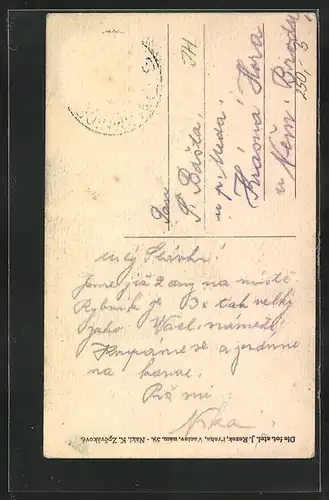 JH
250,-
Paní
S. Bašta,
u p. Meda
Krásná Hora
u Něm. Brodu
Můj Slávku!
Jsme již 2 dny na místě
Rybník je 3x tak velký
jako Václ. náměstí
Koupáme se a jedeme
na
Piš mi
Dle fot. atel. J. Rezek, Praha, Václav. nám. 59. - Nakl. K. Zpěvákové.